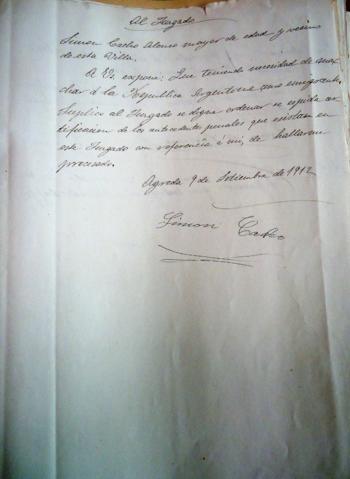 Al Juzgado
Simon Cacho Alonso mayor de edad y vecino
de esta Villa.
A Vs, expone: Que teniendo necesidad de mar
char á la Republica Argentina como emigrante,
Suplica al Juzgado se digne ordenar se expida cer
tificacion de los antecedentes penales que existan en
este Juzgado con referencia á mi, de hallarme
procesado.
Agreda 9 de Setiembre de 1912
Simon Cacho